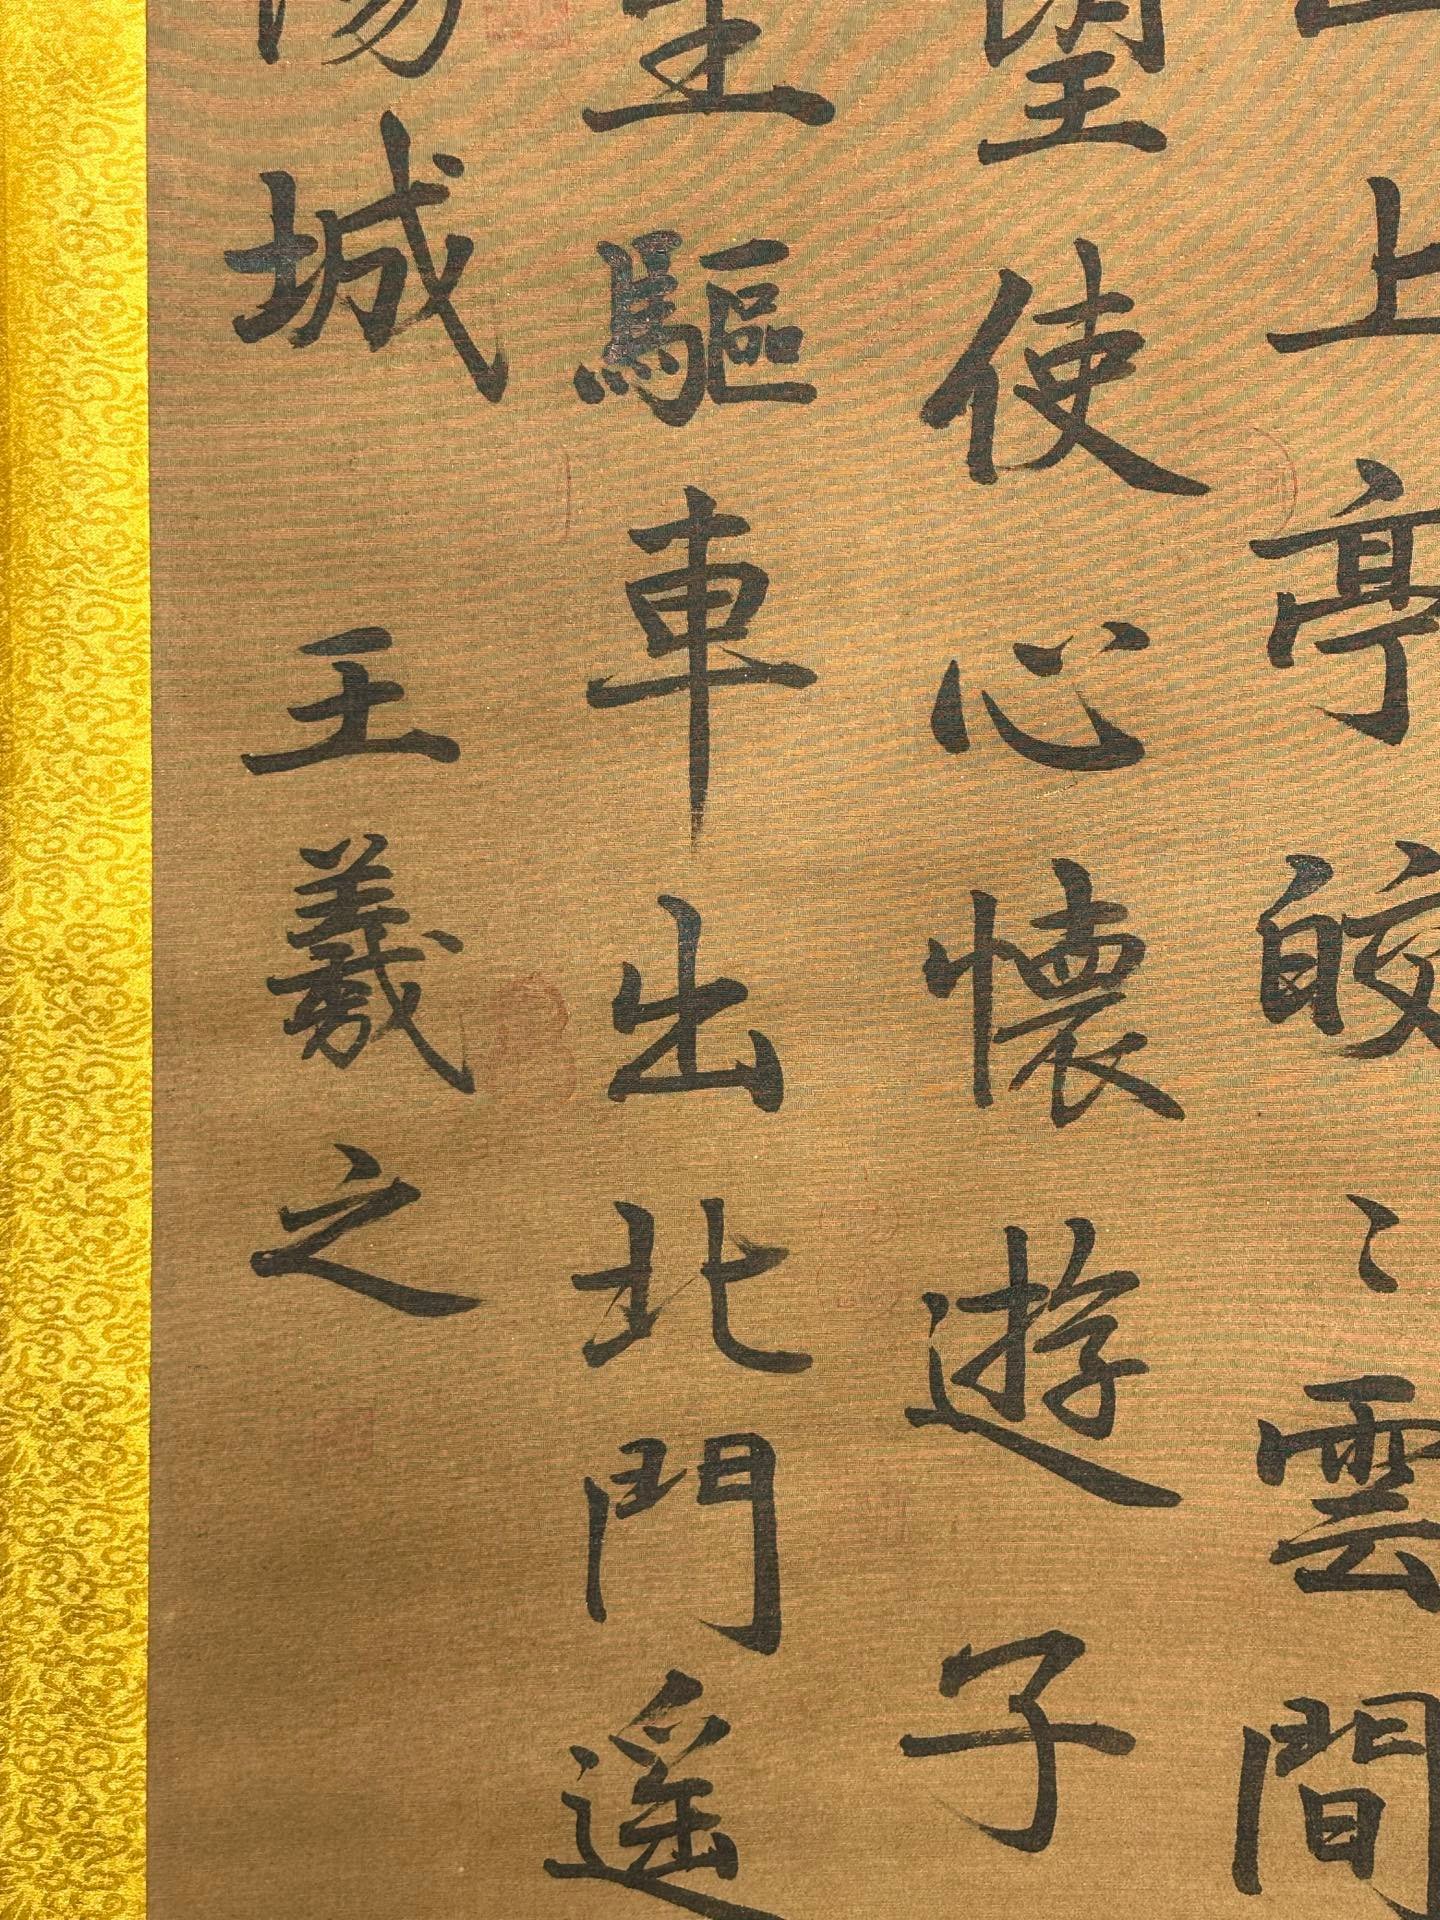 上亭皎〻雲間
望使心懷遊子
驅車出北門遥
城 王羲之